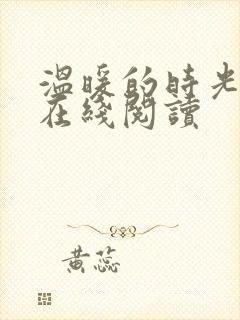 溫暖的時光
在綫閱讀
黃蕊